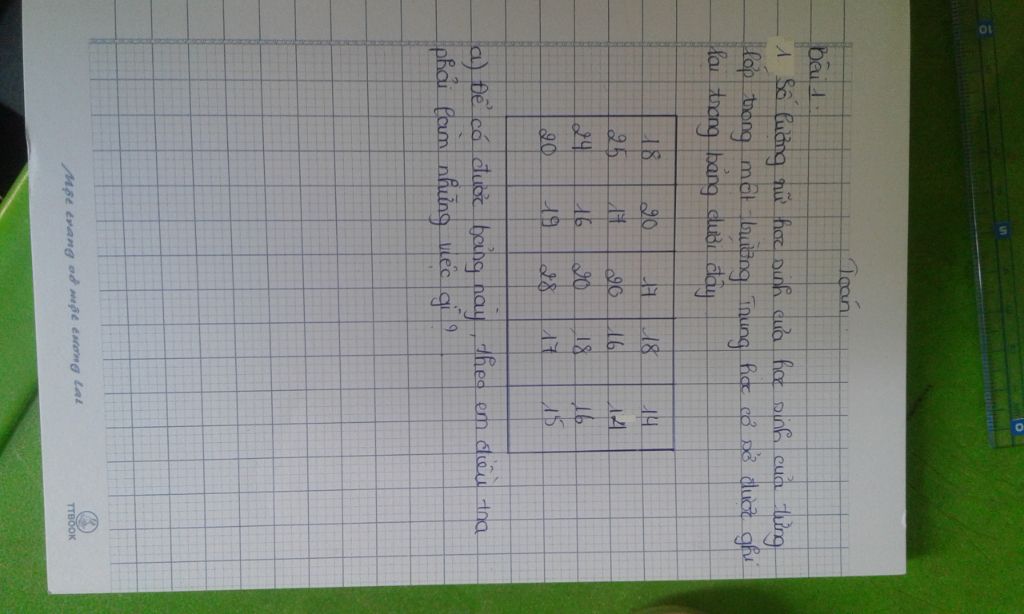 Toán
Bài 1:
1 Số lượng nữ học sinh của học sinh của từng
lớp trong một trường Trung học cơ sở được ghi
lại trong bảng dưới đây
18 20 17 18 14
25 17 20 16 14
24 16 20 18 16
20 19 28 17 15
a) Để có được bảng này, theo em điều tra
phải làm những việc gì?
TTBOOK
5
6